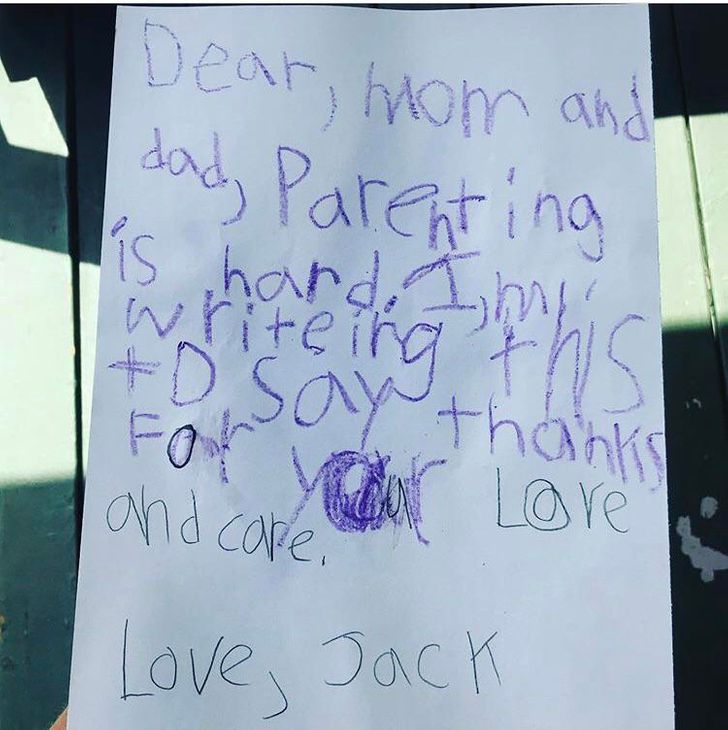 Dear, mom and
dad, Parenting
is hard. I,m
writeing this
to say thanks
For your Love
and care.
Love, Jack